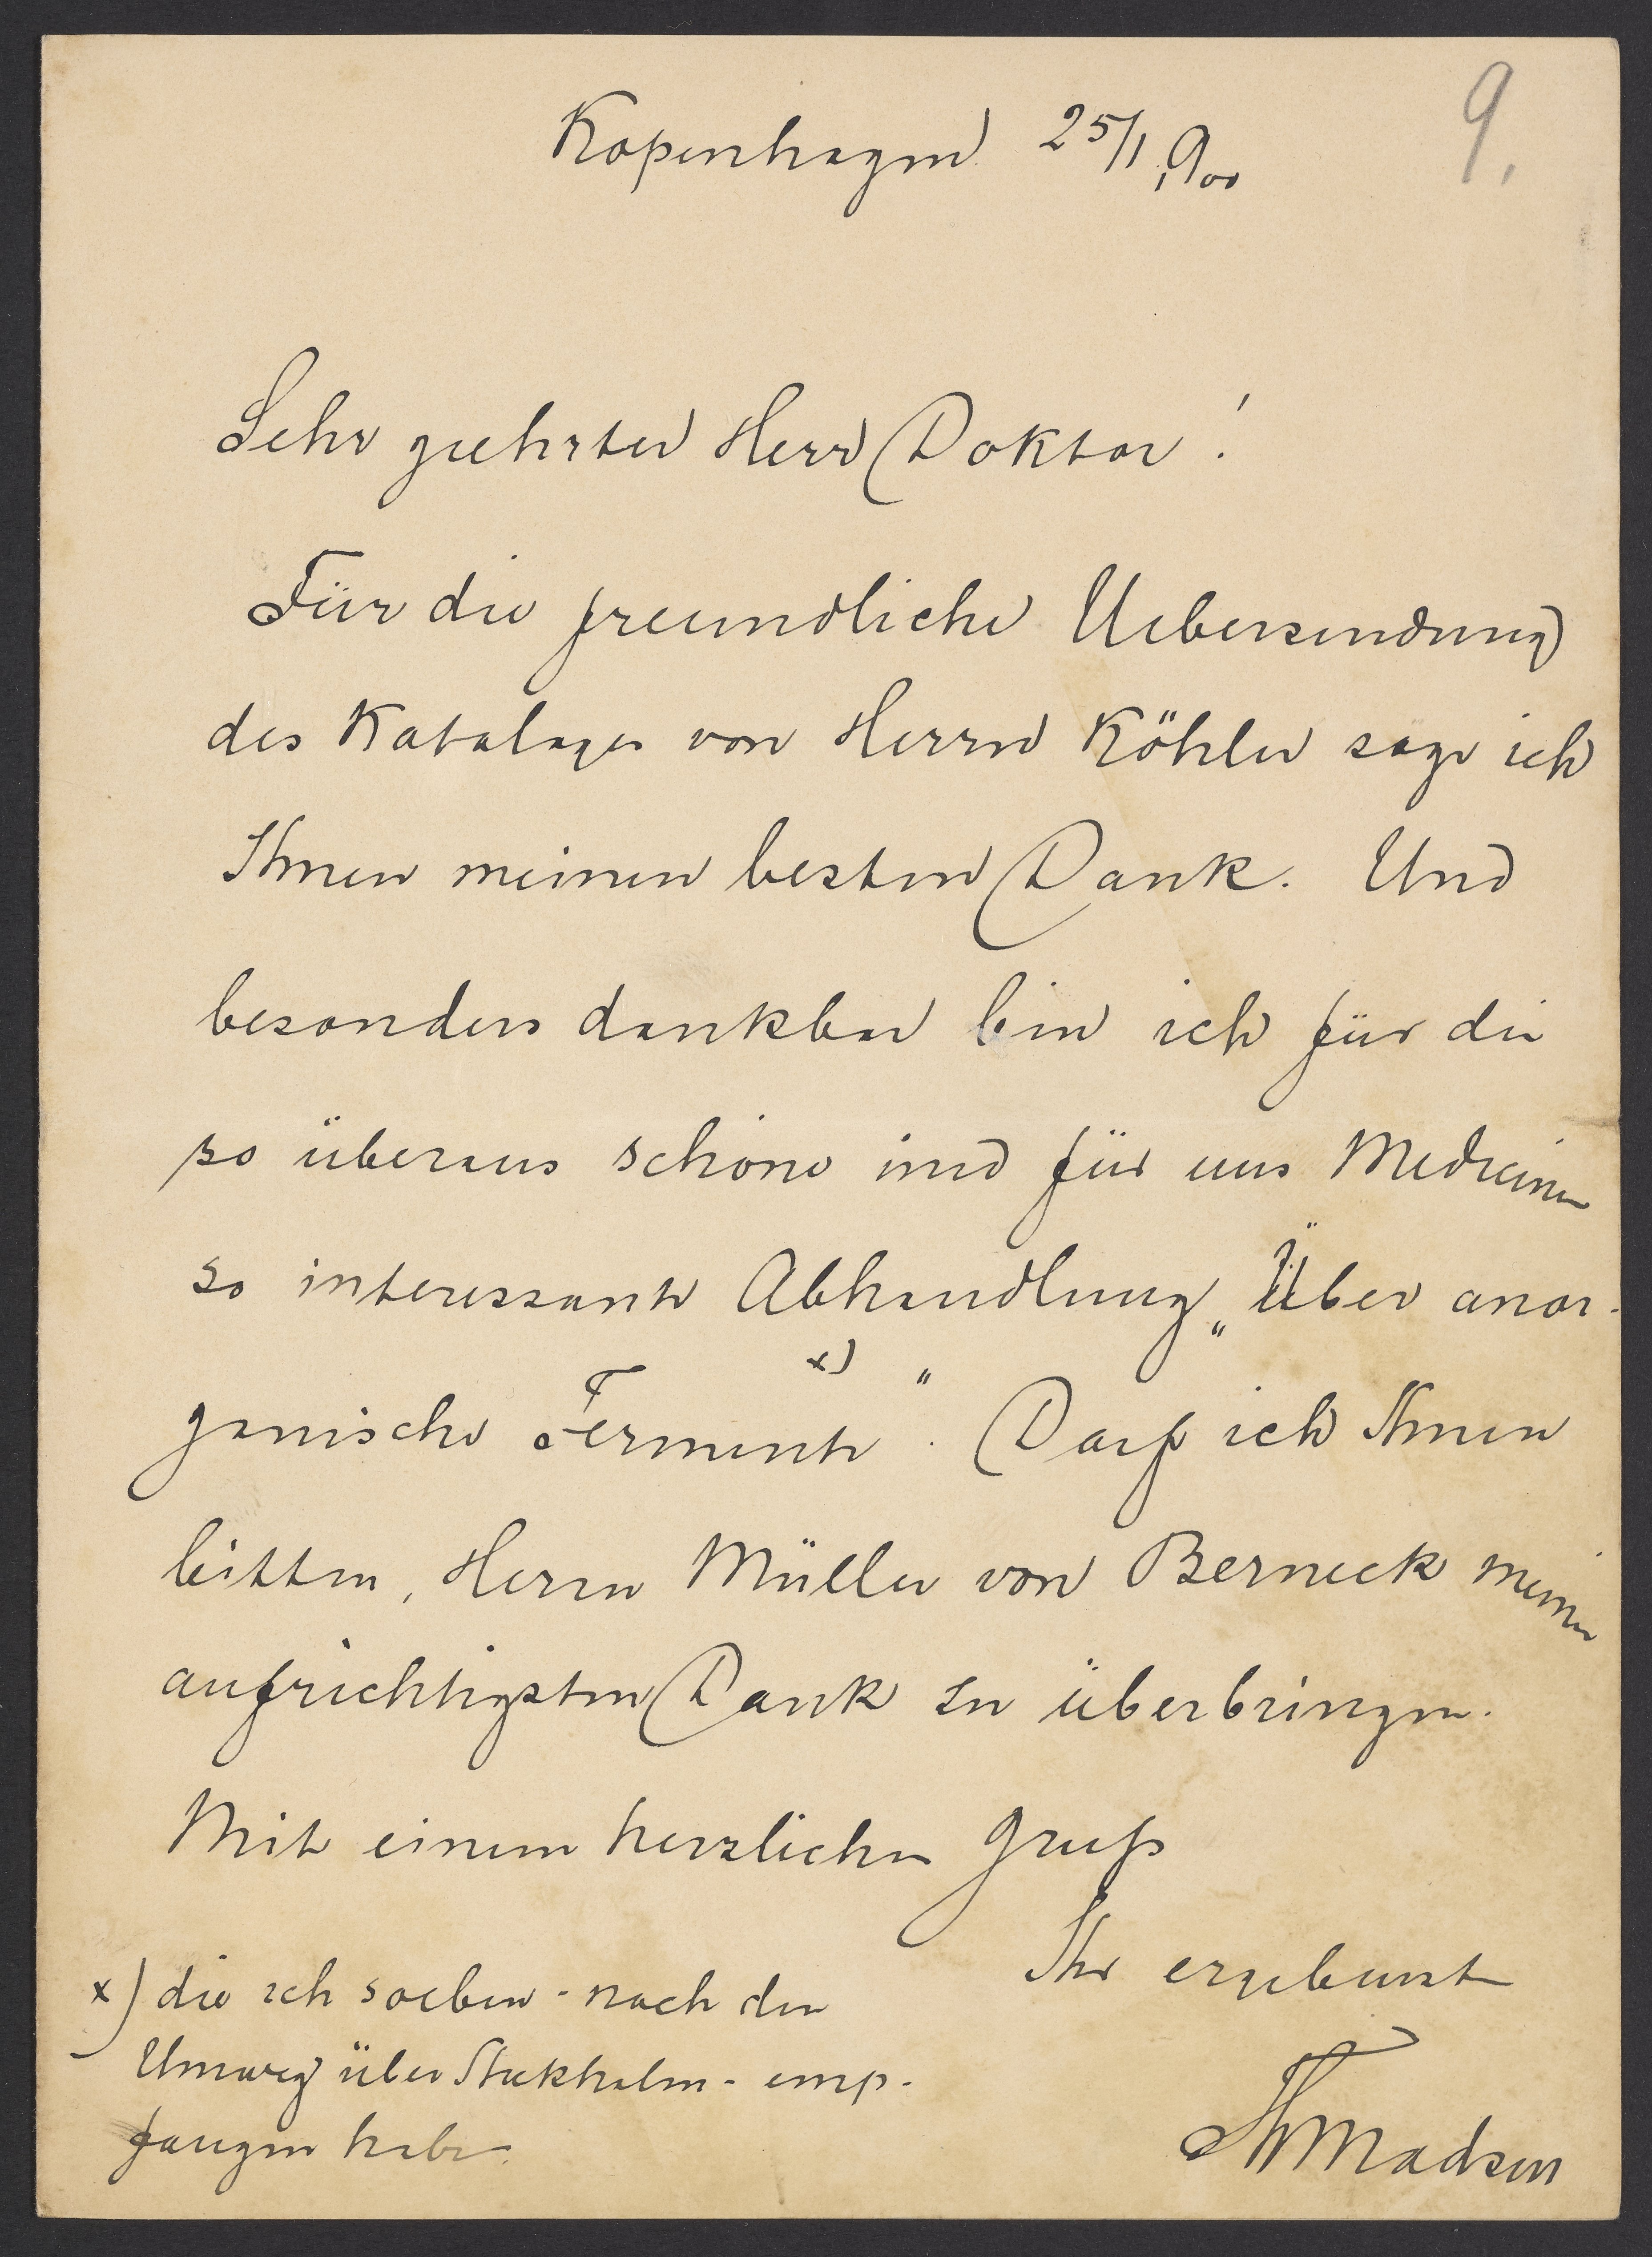 9.
Kopenhagen 25/1 1900
Sehr geehrter Herr Doktor!
Für die freundliche Uebersendung
des Kataloges von Herrn Köhler sage ich
Ihnen meinen besten Dank. Und
besonders dankbar bin ich für die
so überaus schöne und für uns Mediciner
so interessante Abhandlung „Über anor-
ganische Fermente x)". Darf ich Ihnen
bitten, Herrn Müller von Berneck meinen
aufrichtigsten Dank zu überbringen.
Mit einem herzlichen Gruß
Ihr ergebenst
Th Madsen
x) die ich soeben - nach den
Umweg über Stockholm - emp-
fangen habe.